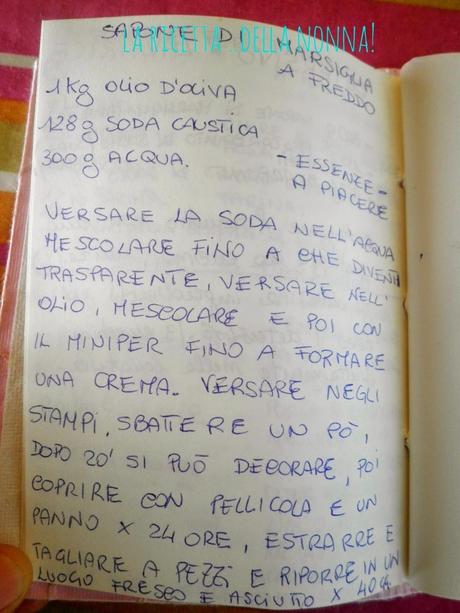 LA RICETTA...DELLA NONNA!
SAPONE DI MARSIGLIA
A FREDDO
1Kg OLIO D'OLIVA
128g SODA CAUSTICA
300g ACQUA.
- ESSENZE -
A PIACERE
VERSARE LA SODA NELL'ACQUA
MESCOLARE FINO A CHE DIVENTI
TRASPARENTE, VERSARE NELL'
OLIO, MESCOLARE E POI CON
IL MINIPER FINO A FORMARE
UNA CREMA. VERSARE NEGLI
STAMPI, SBATTERE UN PÒ,
DOPO 20' SI PUÒ DECORARE, POI
COPRIRE CON PELLICOLA E UN
PANNO X 24 ORE, ESTRARRE E
TAGLIARE A PEZZI E RIPORRE IN UN
LUOGO FRESCO E ASCIUTTO X 40 GG.